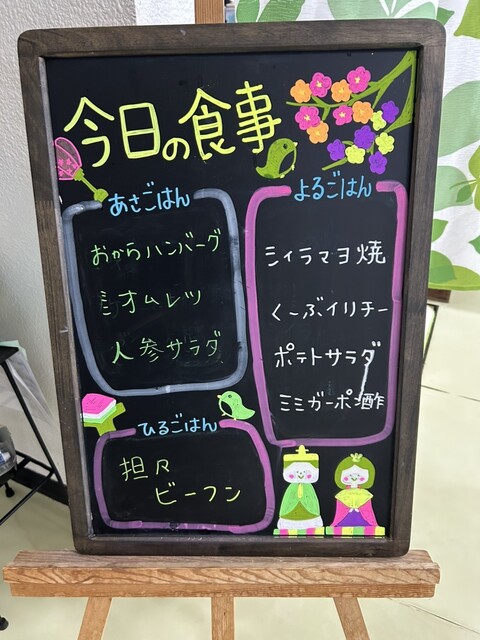 今日の食事
あさごはん
おからハンバーグ
オムレツ
人参サラダ
ひるごはん
担々
ビーフン
よるごはん
シイラマヨ焼
くーぶイリチー
ポテトサラダ
ミミガーポン酢